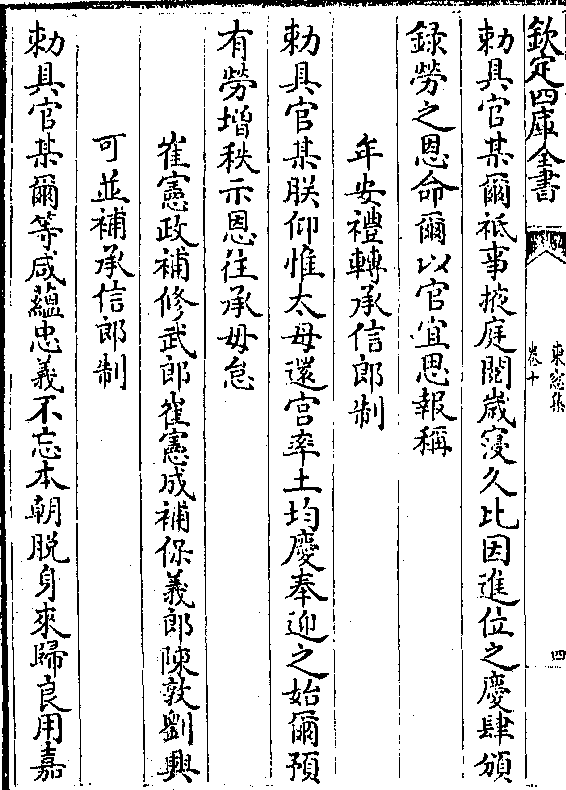 欽定四庫全書
東窓集
卷十
四
勅具官某爾祗事掖庭閲嵗寖久比因進位之慶肆頒
録勞之恩命爾以官宜思報稱
年安禮轉承信郎制
勅具官某朕仰惟太母還宫率土均慶奉迎之始爾預
有勞增秩示恩往承毋怠
崔憲政補修武郎崔憲成補保義郎陳敦劉興
可並補承信郎制
勅具官某爾等咸蘊忠義不忘本朝脱身來歸良用嘉